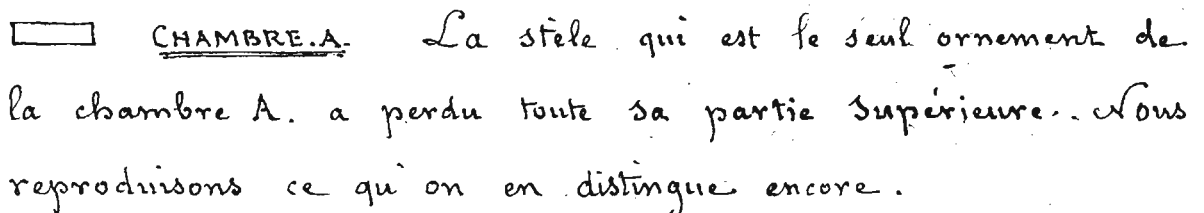 CHAMBRE.A. La stèle qui est le seul ornement de
la chambre A. a perdu toute sa partie supérieure. Nous
reproduisons ce qu'on en distingue encore.